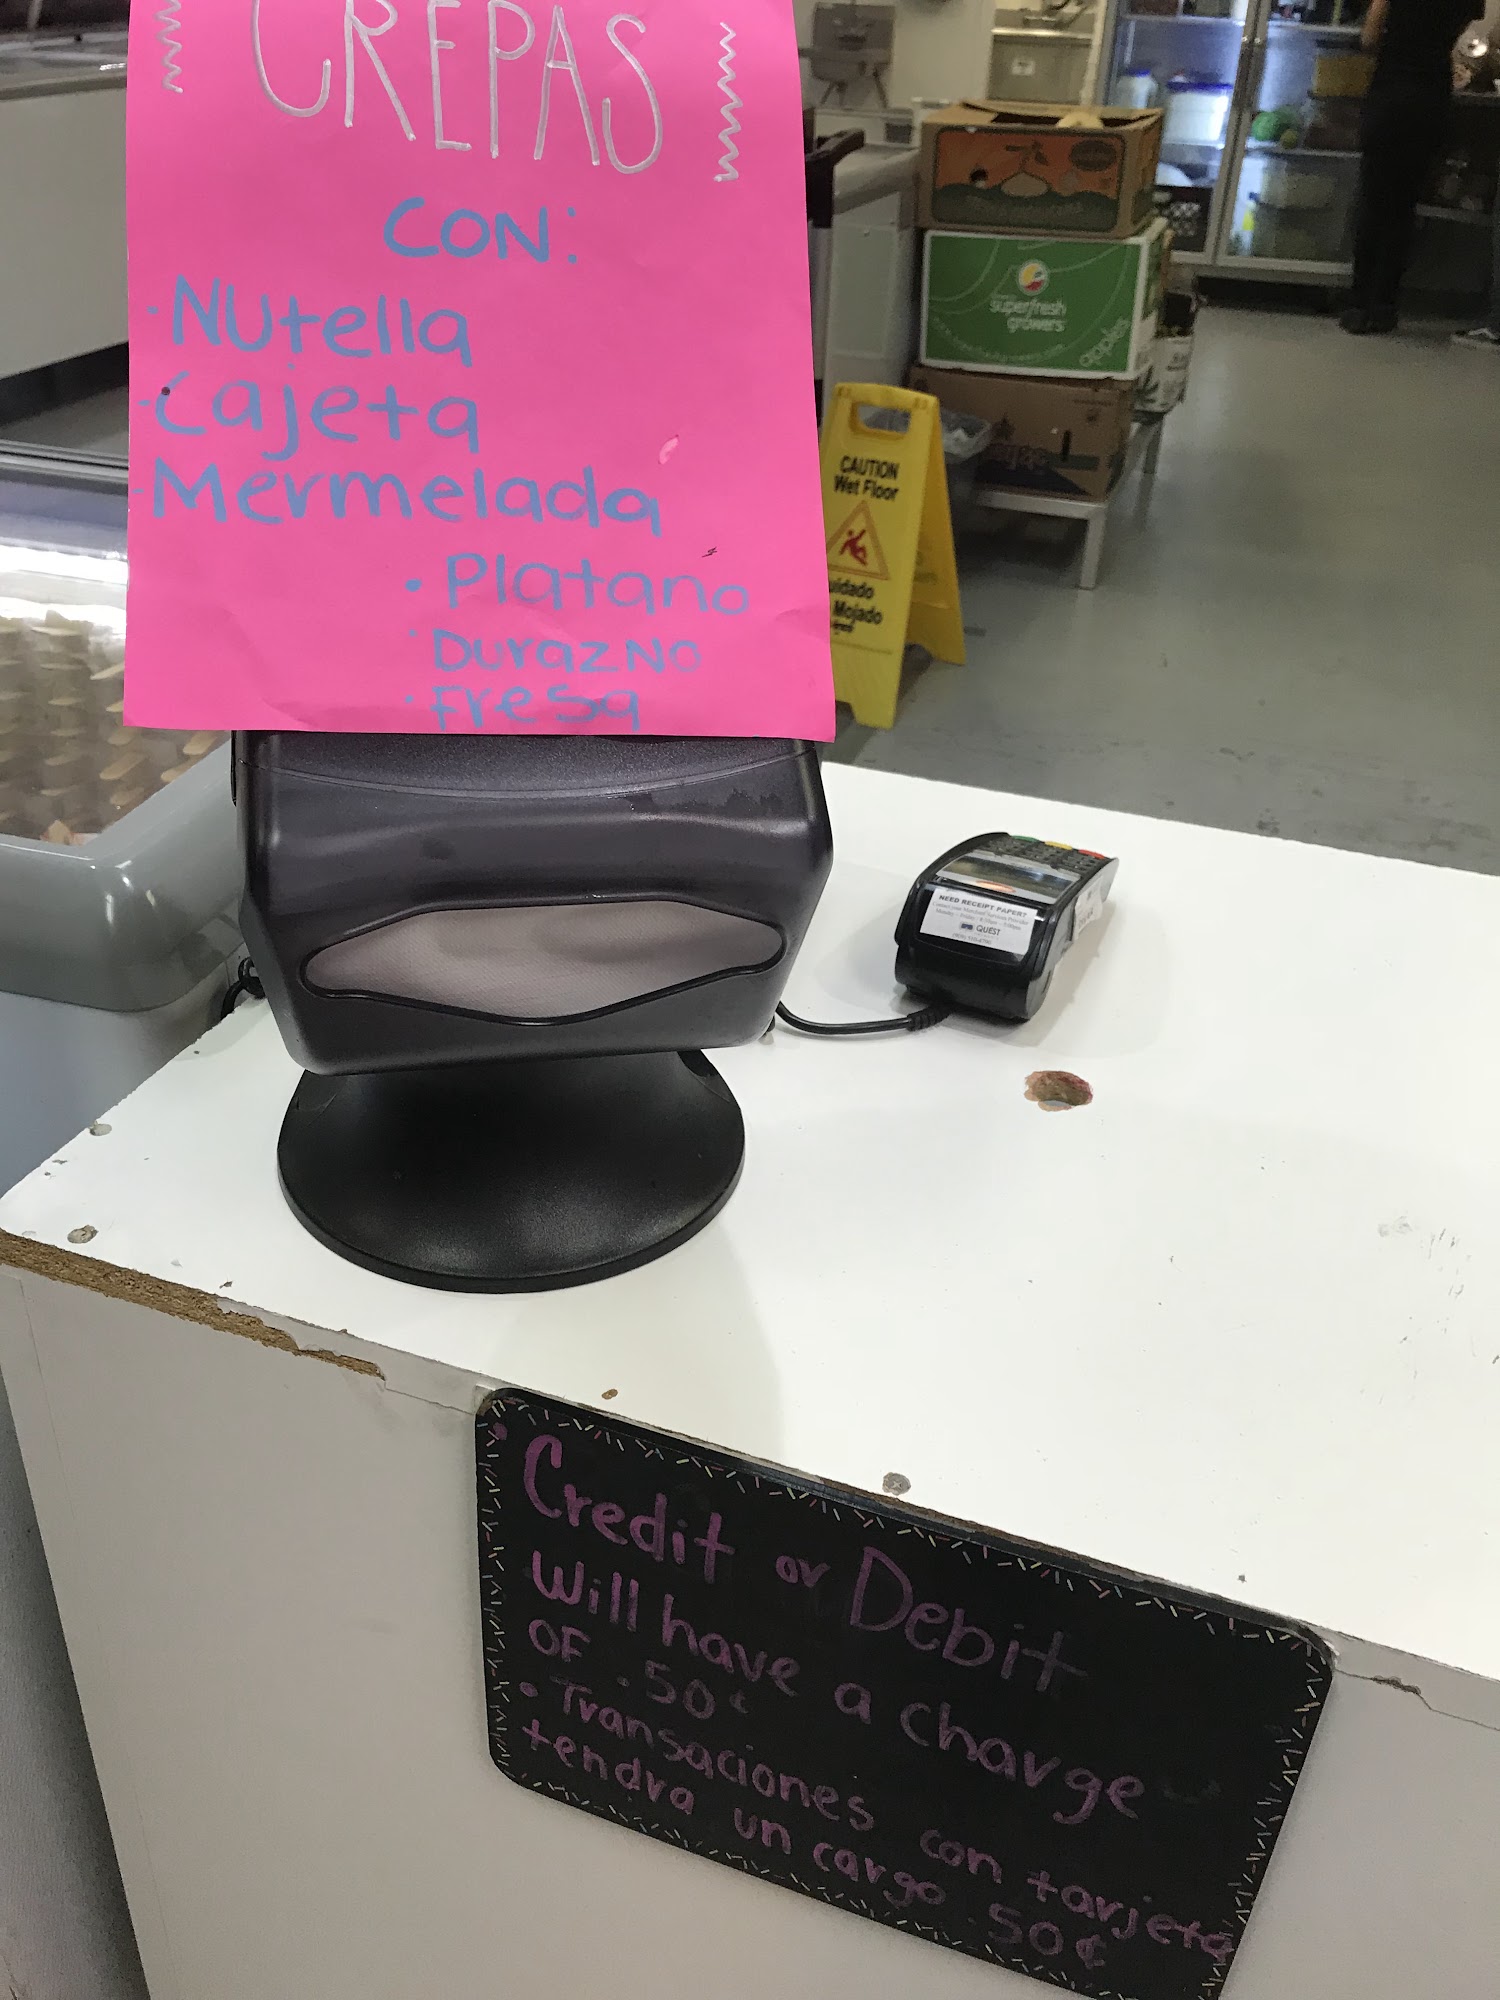 CREPAS
CON:
· Nutella
· Cajeta
- Mermelada
· Platano
· Durazno
· Fresa
superfresh
growers
apples
CAUTION
Wet Floor
Mojado
NEED RECEIPT PAPER?
QUEST
· Credit or Debit
Will have a charge
OF .50¢
· Transaciones con tarjeta
tendra un cargo .50¢